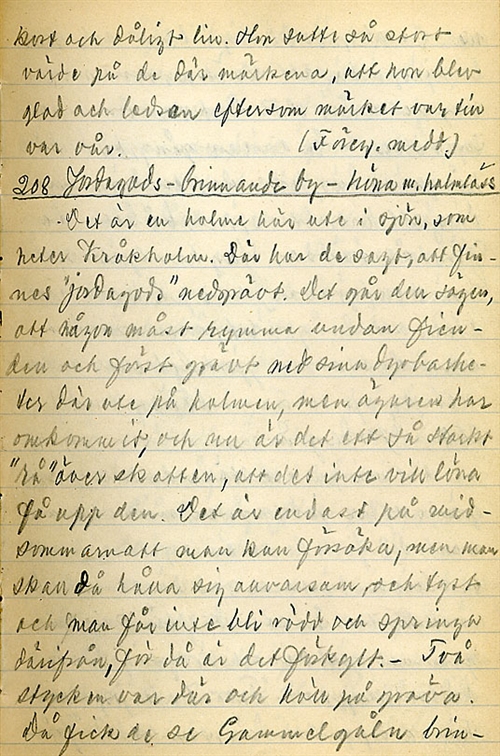 kort och dåligt liv. Hon satte så stort
värde på de där märkena, att hon blev
glad och ledsen eftersom märket var tin
var vår. (Föreg. medd.)
208 Jordagods - brinnande by - höna m. halmlass
Det är en holme här ute i sjön, som
heter Kråkholm. Där har de sagt, att fin-
nes "jordagods" nedgrävt. Det går den sägen,
att någon måst rymma undan fien-
den och först grävt ned sina dyrbarhe-
ter där ute på holmen, men ägaren har
omkommit, och nu är det ett så starkt
"rå" över skatten, att det inte vill löna
få upp den. Det är endast på mid-
sommarnatt man kan försöka, men man
skall då hålla sig allvarsam, och tyst
och man får inte bli rädd och springa
därifrån, för då är det förkylt. - Två
stycken var där och höll på gräva.
Då fick de se Gammelgåln brin-